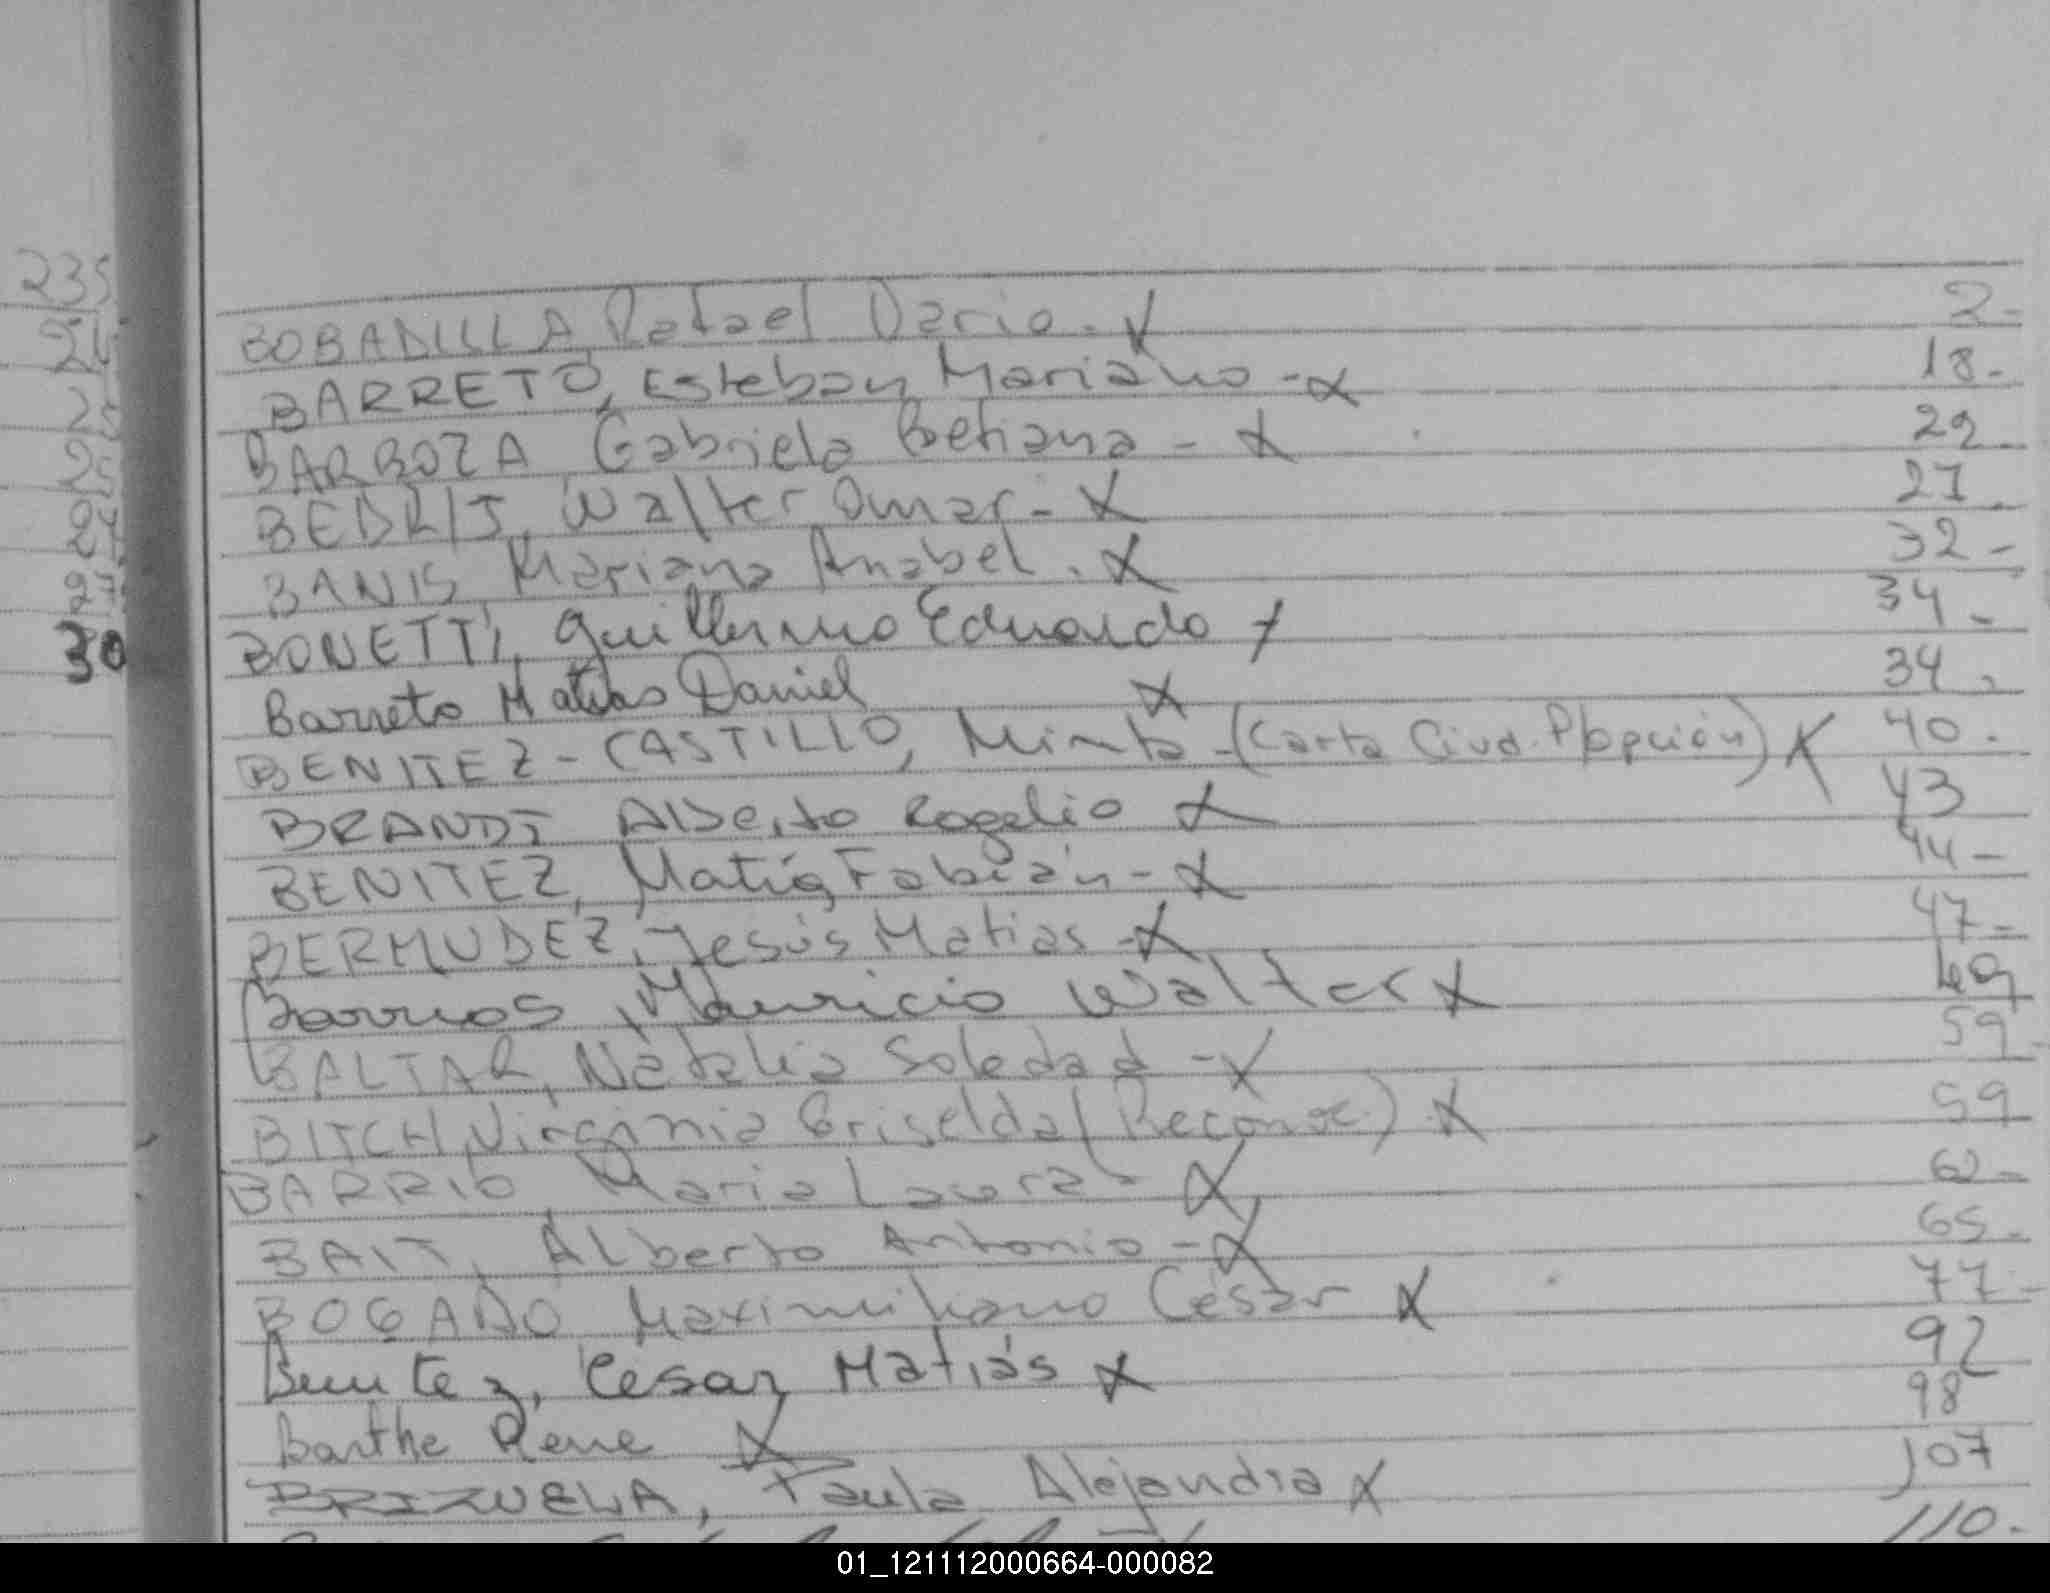 235
24
25
25
27
27
30
BOBADILLA, Rafael Dario. X 2-
BARRETO, Esteban Mariano - X 18-
BARBOZA Gabriela Betiana - X 22-
BEDRIJ, Walter Omar - X 27-
BANIS, Mariana Anabel. X 32-
BONETTI, Guillermo Eduardo X 34-
Barreto Matias Daniel X 34-
BENITEZ-CASTILLO, Mirta - (Carta Ciud. P/opción) X 40.
BRANDT Alberto Rogelio X 43
BENITEZ, Matías Fabián - X 44-
BERMUDEZ, Jesús Matias - X 47-
Barrios, Mauricio Walter X 49
BALTAR, Natalia Soledad - X 59-
BITCH, Virginia Griselda (Reconoc.) X 59
BARRIO, Maria Laura - X 62-
BAIT, Alberto Antonio - X 65-
BOGADO Maximiliano César X 77-
Benitez, Cesar Matiás X 92
Barthe Rene X 98
BRIZUELA, Paula Alejandra X 107
110.
01_121112000664-000082